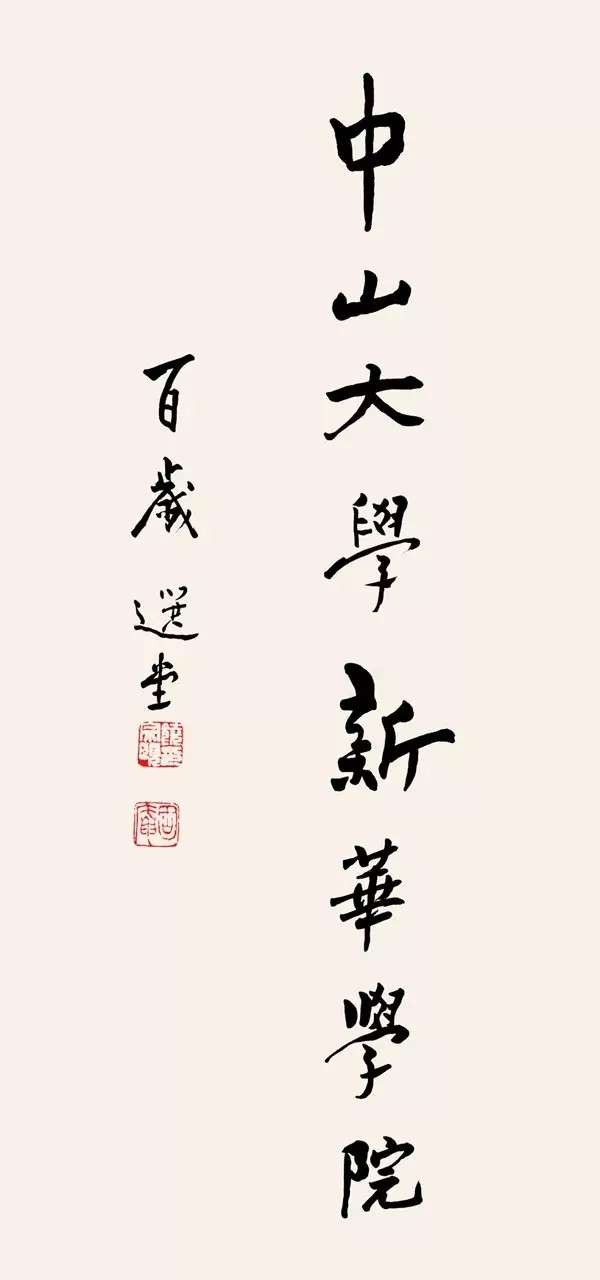 中山大學新華學院
百歲選堂